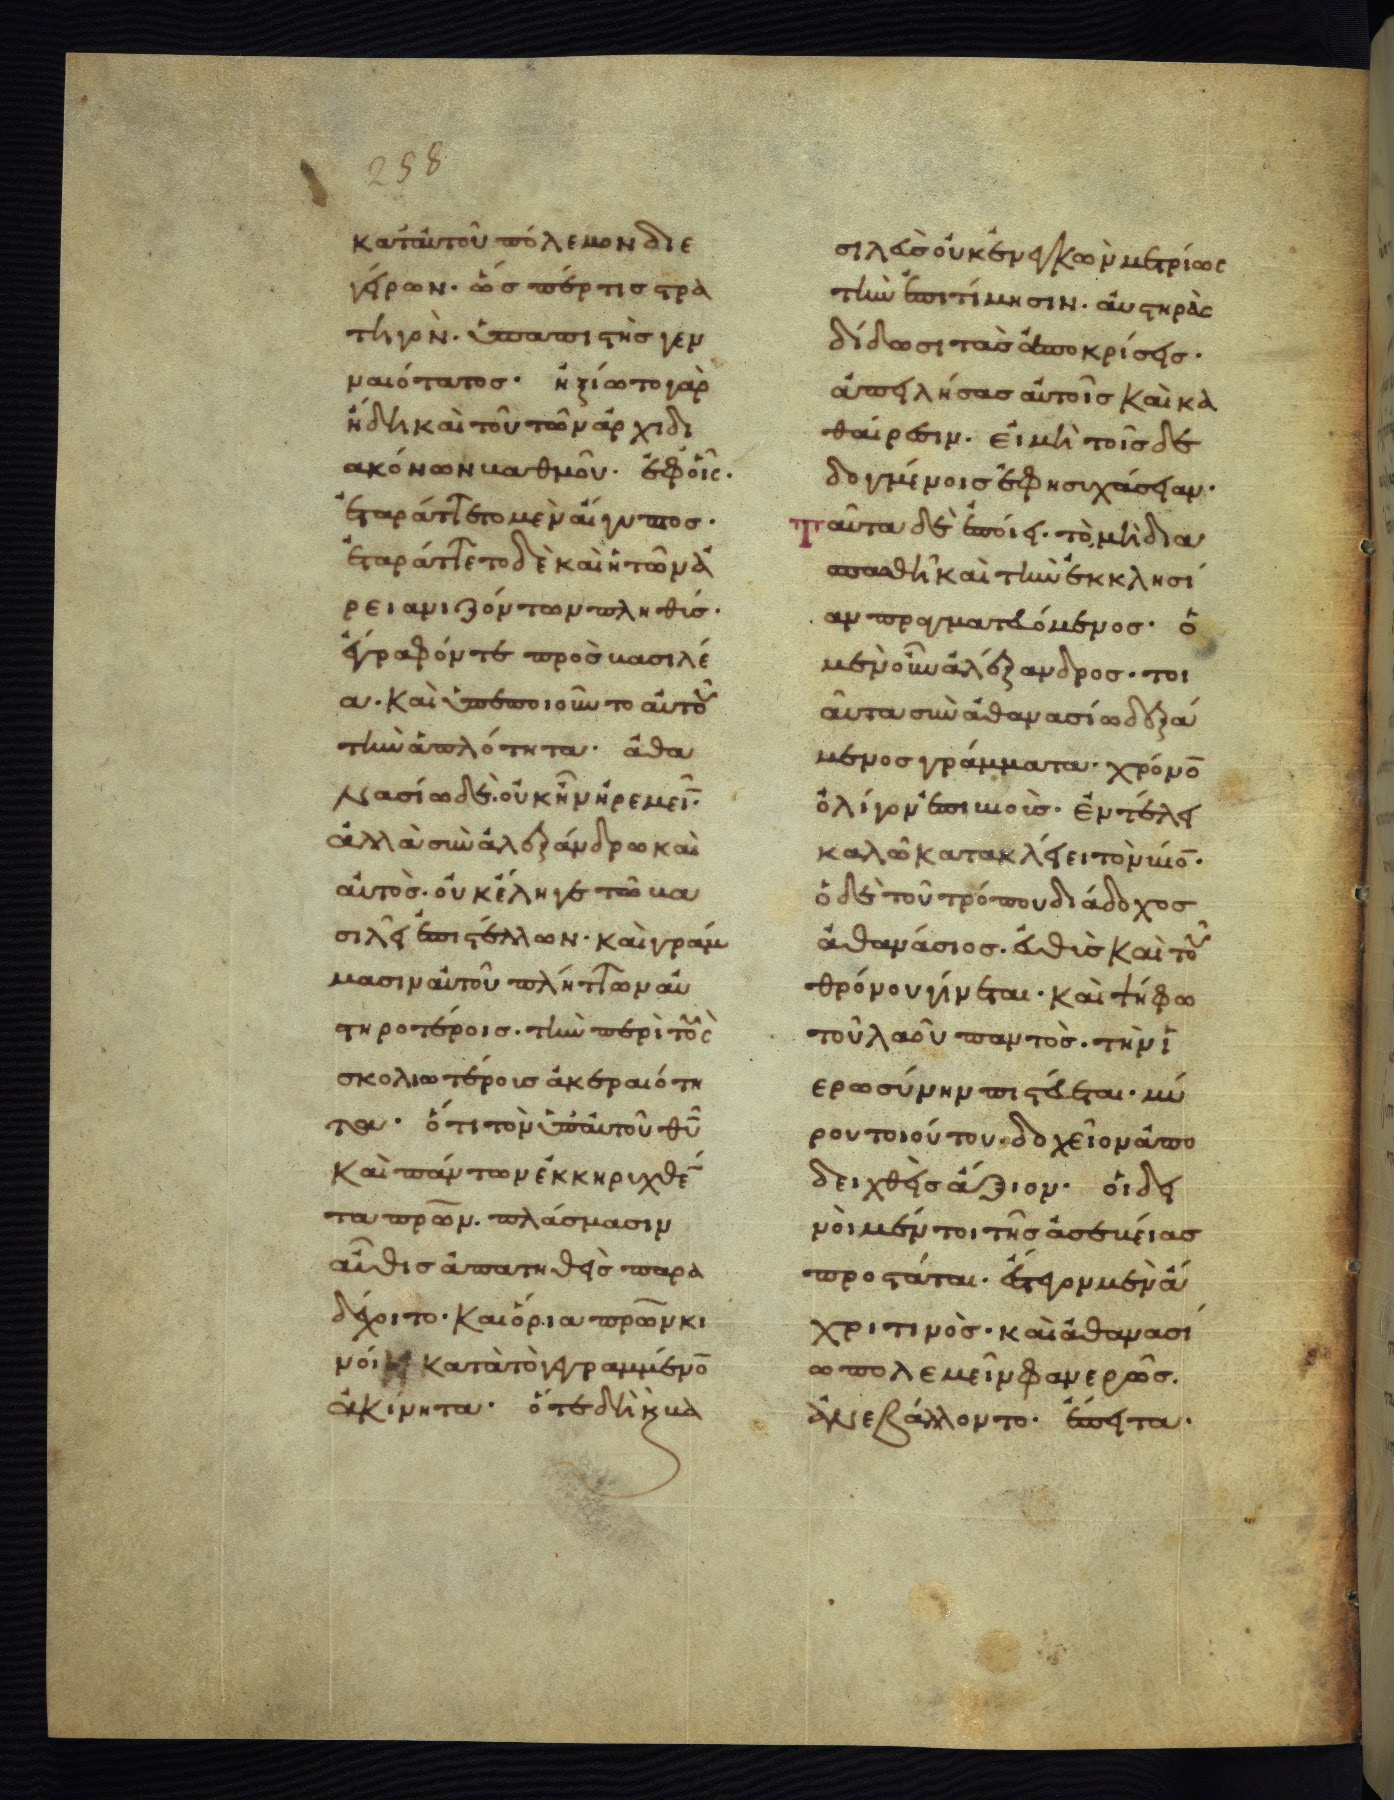 258
κατ' αὐτοῦ πόλεμον διε
γέρων· ὥσπέρ τις στρα
τηγὸν· ὑπασπιστὴς γεν
ναιότατος· ἠξίωτο γὰρ
ἤδη καὶ τοῦ τῶν ἀρχιδι
ακόνων βαθμοῦ· ἐφ' οἷς·
ἐταράττετο μὲν αἴγυπτος·
ἐταράττετο δὲ καὶ ἡ τῶν ἀ
ρειανιζόντων πληθύς·
ἔγραφόν τε πρὸς βασιλέ
α· καὶ ὑπεποιοῦντο αὐτοῦ
τὴν ἁπλότητα· ἀθα
νασίω δὲ· οὐκ ἦν ἠρεμεῖ̅·
ἀλλὰ σὺν ἀλεξάνδρω καὶ
αὐτὸς· οὐκ ἔληγε τῶ βα
σιλεῖ ἐπιστέλλων· καὶ γράμ
μασιν αὐτοῦ πλήττων αὐ
στηροτέροις· τὴν περὶ τοὺς
σκολιωτέροις ἀκεραιότη
τα· ὅτι τὸν ὑπ' αὐτοῦ θῦ
καὶ πάντων ἐκκηριχθέ̅
τα πρώην· πλάσμασιν
αὖθις ἀπατηθεὶς παρα
δέχοιτο· καὶ ὅρια πρώην κι
νοί κατὰ τὸ γεγραμμένο̅
ἀκίνητα· ὅτε δὴ ὁ βα
σιλεὺς οὐκ ἐνεγκὼν μετρίως
τὴν ἐπιτίμησιν· αὐστηρὰς
δίδωσι τὰς ἀποκρίσεις·
ἀπειλήσας αὐτοῖς καὶ κα
θαίρεσιν· εἰ μὴ τοῖς δε
δογμένοις ἐφησιχάσειαν·
Ταῦτα δὲ ἐποίει· τὸ μὴ δια
σπασθῆ καὶ τὴν ἐκκλησί
αν πραγματευόμενος· ὁ
μὲν οὖν ἀλέξανδρος· τοι
αῦτα σὺν ἀθανασίω δεξά
μενος γράμματα· χρόνο̅
ὀλίγον ἐπιβιοὺς· ἐν τέλει
καλῶ κατακλείει τὸν βίο̅·
ὁ δὲ τοῦ τρόπου διάδοχος
ἀθανάσιος· εὐθὺς καὶ τοῦ
θρόνου γίνεται· καὶ ψήφω
τοῦ λαοῦ παντὸς· τὴν ἱ
ερωσύνην πιστεύεται· μύ
ρου τοιούτου· δοχεῖον ἀπο
δειχθεὶς ἄξιον· οἱ δει
νοὶ μέντοι τῆς ἀσεβείας
προστάται· ἔστεργον μὲν ἄ
χρι τινὸς· καὶ ἀθανασί
ω πολεμεῖν φανερῶς·
ἀνεβάλλοντο· ἔπειτα·